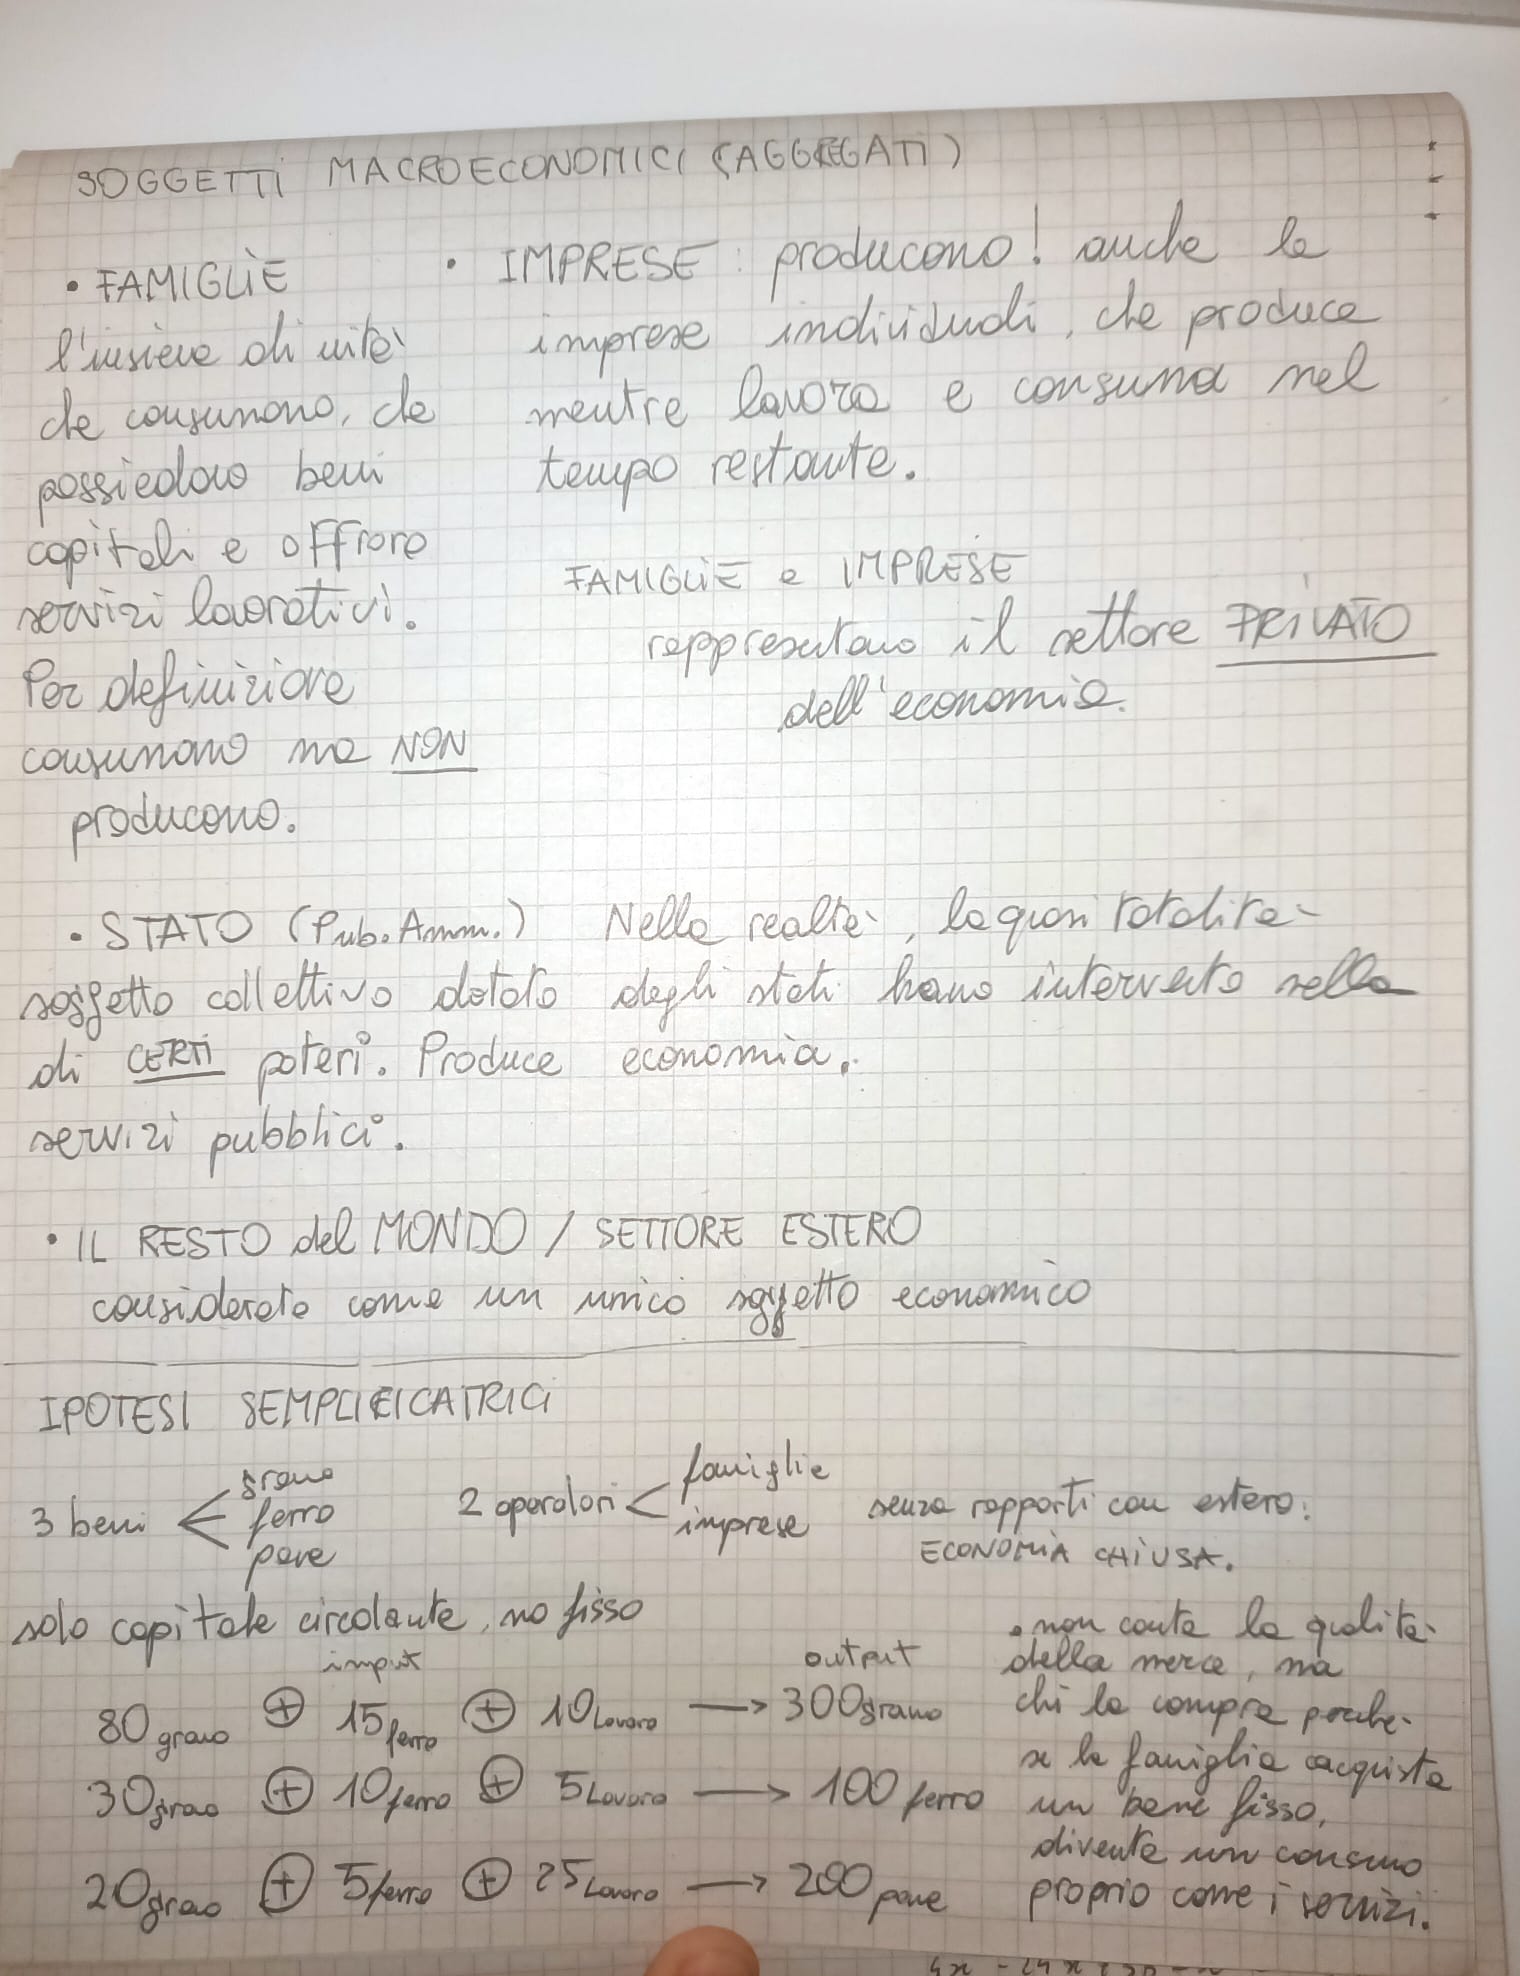 SOGGETTI MACROECONOMICI (AGGREGATI)
• FAMIGLIE
l'insieme di unità
che consumano, che
possiedono beni
capitali e offrono
servizi lavorativi.
Per definizione
consumano ma NON
producono.
• IMPRESE: producono! anche le
imprese individuali, che produce
mentre lavora e consuma nel
tempo restante.
FAMIGLIE e IMPRESE
rappresentano il settore PRIVATO
dell'economia.
• STATO (Pub. Amm.)
soggetto collettivo dotato
di CERTI poteri. Produce
servizi pubblici.
Nella realtà, la quasi totalità
degli stati hanno intervento nella
economia.
• IL RESTO del MONDO / SETTORE ESTERO
considerato come un unico soggetto economico
IPOTESI SEMPLIFICATRICI
3 beni < grano
ferro
pane
2 operatori < famiglie
imprese
senza rapporti con estero:
ECONOMIA CHIUSA.
solo capitale circolante, no fisso
input output
80 grano ⊕ 15 ferro ⊕ 10 Lavoro → 300 grano
30 grano ⊕ 10 ferro ⊕ 5 Lavoro → 100 ferro
20 grano ⊕ 5 ferro ⊕ 25 Lavoro → 200 pane
• non conta la qualità
della merce, ma
chi la compra perché
se la famiglia acquista
un bene fisso,
diventa un consumo
proprio come i servizi.